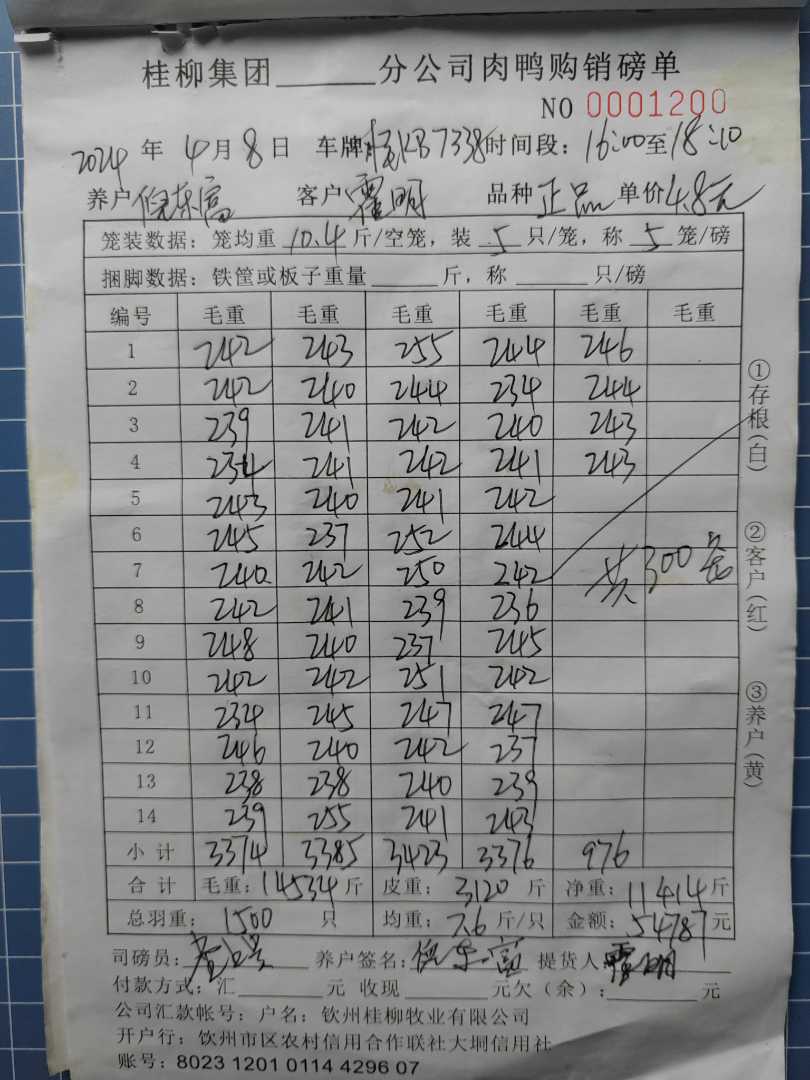 桂柳集团______分公司肉鸭购销磅单
NO 0001200
2024 年 4月 8日 车牌桂KB7338时间段：16:00至18:10
养户 客户 霍明 品种 正品 单价4.8元
笼装数据：笼均重 10.4 斤/空笼，装 5 只/笼，称 5 笼/磅
捆脚数据：铁筐或板子重量______斤，称______只/磅
编号 毛重 毛重 毛重 毛重 毛重 毛重
1 242 243 255 244 246
2 242 240 244 234 244
3 239 241 242 240 243
4 234 241 242 241 243
5 243 240 241 242
6 245 237 252 244
7 240 242 250 242 共300笼
8 242 241 239 236
9 248 240 237 245
10 242 242 251 242
11 234 245 247 247
12 246 240 242 237
13 238 238 240 239
14 239 255 241 243
小计 3374 3385 3423 3376 976
合计 毛重：14534斤 皮重：3120斤 净重：11414斤
总羽重：1500 只 均重：7.6斤/只 金额：54787元
司磅员： 养户签名： 提货人：霍明
付款方式：汇______元 收现______元欠（余）：______元
公司汇款帐号：户名：钦州桂柳牧业有限公司
开户行：钦州市区农村信用合作联社大垌信用社
账号：8023 1201 0114 4296 07
①存根（白）
②客户（红）
③养户（黄）